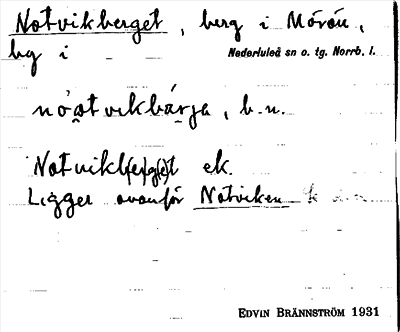 Notvikberget, berg i Mörön,
by i Nederluleå sn o. tg. Norrb. l.
Notvikb(er)g(e)t ek.
Ligger ovanför Notviken
EDVIN BRÄNNSTRÖM 1931